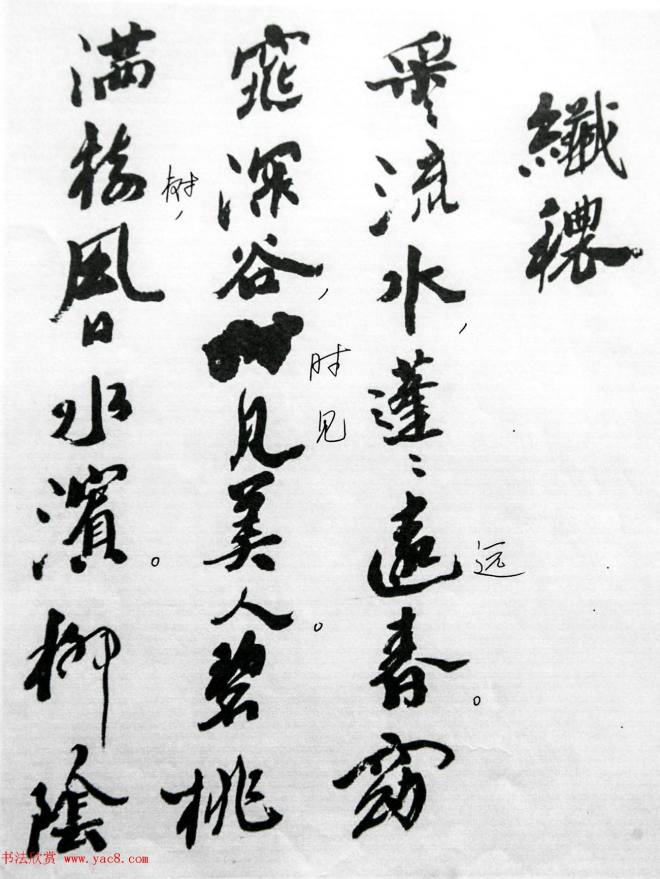 纖穠
采々流水,蓬々遠春。窈
远
窕深谷,見美人。碧桃
时见
滿樹風日水濱。柳陰
树,
书法欣赏 www.yac8.com